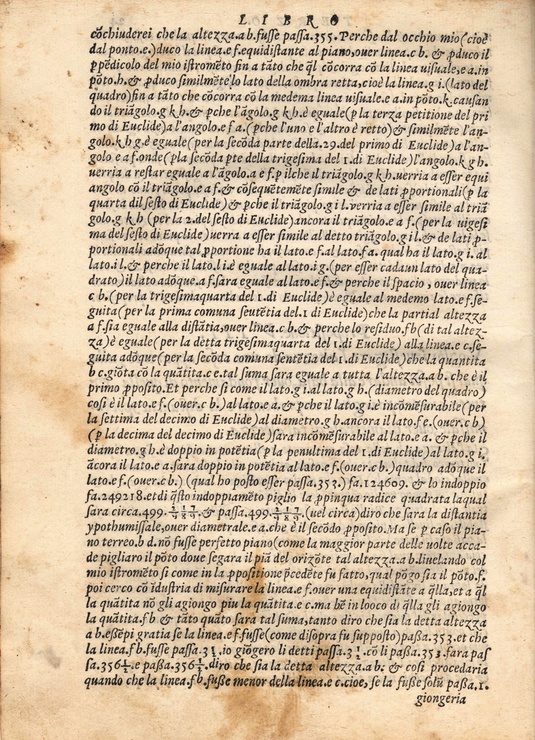 LIBRO
cõchiuderei che la altezza.a b.fusse passa.355. Perche dal occhio mio (cioè
dal ponto.e.)duco la linea.e f.equidistante al piano,ouer linea.c b. & ꝓduco il
ꝑpẽdicolo del mio istromẽto fin a tãto che q̃l cõcorra cõ la linea uisuale,e a.in
põto.h.& ꝓduco similmẽte lo lato della ombra retta,cioè la linea.g i.(lato del
quadro)fin a tãto che cõcorra cõ la medema linea uisuale.e a.in põto.k.causan
do il triãgolo.g k h.& ꝑche l'ãgolo.g k h.è eguale(ꝑ la terza petitione del pri
mo di Euclide)a l'angolo.e f a.(ꝑche l'uno e l'altro è retto)& similmẽte l'an-
golo.k h g.è eguale(per la secõda parte della.29.del primo di Euclide)a l'an-
golo e a f.onde(ꝑla secõda ꝑte della trigesima del 1.di Euclide)l'angolo.k g h.
uerria a restar eguale a l'ãgolo.a e f.ꝑ ilche il triãgolo.g k h.uerria a esser equi
angolo cõ il triãgolo.e a f.& cõsequẽtemẽte simile & de lati ꝓportionali(ꝑ la
quarta dil sesto di Euclide)& ꝑche il triãgolo.g i l.verria a esser simile al triã
golo.g k h (per la 2.del sesto di Euclide)ancora il triãgolo.e a f.(per la uigesi
ma del sesto di Euclide)uerra a esser simile al detto triãgolo.g i l.& de lati ꝓ
portionali adõque tal ꝓportione ha il lato.e f.al lato.f a.qual ha il lato.g i. al
lato.i l.& perche il lato.l i.è eguale al lato.i g.(per esser cadaun lato del qua-
drato)il lato adõque.a f.sara eguale al lato.e f.& perche il spacio, ouer linea
c b.(per la trigesimaquarta del 1.di Euclide)è eguale al medemo lato.e f.se-
guita(per la prima comuna sentẽtia del.1 di Euclide)che la partial altezza
a f.sia eguale alla distãtia,ouer linea.c b.& perche lo residuo.f b(di tal altez-
za)è eguale(per la detta trigesimaquarta del 1.di Euclide) alla linea.e c.se-
guita adõque(per la secõda comuna sentẽtia del 1.di Euclide)che la quantita
b c.giõta cõ la quãtita.c e.tal suma sara eguale a tutta l'altezza.a b. che è il
primo ꝓposito.Et perche si come il lato.g i.al lato.g h.(diametro del quadro)
cosi è il lato.e f.(ouer.c b.)al lato.e a.& ꝑche il lato.g i.è incõmẽsurabile(per
la settima del decimo di Euclide)al diametro.g h.ancora il lato.f e.(ouer.c b)
(ꝑ la decima del decimo di Euclide)sara incõmẽsurabile al lato.e a. & ꝑche il
diametro.g h.è doppio in potẽtia(ꝑ la penultima del 1.di Euclide)al lato.g i.
ãcora il lato.e a.sara doppio in potẽtia al lato.e f.(ouer.c b.)quadro adõque il
lato.e f.(ouer.c b.) (qual ho posto esser passa.353.) fa.124609. & lo indoppio
fa.249218.et di q̃sto indoppiamẽto piglio la ꝓpinqua radice quadrata laqual
sara circa.499. & passa.499. (uel circa)diro che sara la distantia
ypothumissale,ouer diametrale.e a.che è il secõdo ꝓposito.Ma se ꝑ caso il pia-
no terreo.b d.nõ fusse perfetto piano(come la maggior parte delle uolte acca-
de pigliaro il põto doue segara il piã del orizõte tal altezza.a b.liuelando col
mio istromẽto si come in la ꝓpositione ꝑcedẽte fu fatto,qual põgo sia il põto.f.
poi cerco cõ ĩdustria di misurare la linea.e f.ouer una equidistãte a q̃lla,et a q̃l
la quãtita nõ gli agiongo piu la quãtita.e c.ma bẽ in luoco di q̃lla gli agiongo
la quãtita.f b & tãto quãto sara tal suma,tanto diro che sia la detta altezza
a b.essẽpi gratia se la linea.e f.fusse(come disopra fu supposto)paßa.353.et che
la linea.f b.fusse passa.3½.io giõgero li detti passa.3½.cõ li paßa.353.fara pas
sa.356½.e paßa.356½.diro che sia la detta altezza.a b. & cosi procedaria
quando che la linea.f b.fuße menor della linea.e c.cioe, se la fuße solũ paßa.1.
giongeria